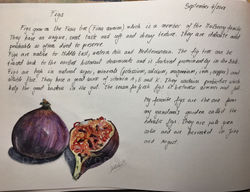 September 4/2018
Figs
Figs grow on the Ficus tree (Ficus carica) which is a member of the Mulberry family.
They have an unique, sweet taste and soft and chewy texture. They are delicate and
perishable so often dried to preserve
Figs are native to Middle East, eastern Asia and Mediterranean. The fig tree can be
traced back to the earliest historical documents and is featured prominently in the Bible
Figs are high in natural sugars, minerals (potassium, calcium, magnesium, iron, copper) and
soluble fiber. They have a good source of vitamin A, E and K. They contain prebiotics which
help the good bacteria in the gut. The season for fresh figs is between summer and fall.
My favorite figs are the one from
my grandma's garden called the
Adriatic figs. They are pale green
color and are harvested in June
and August